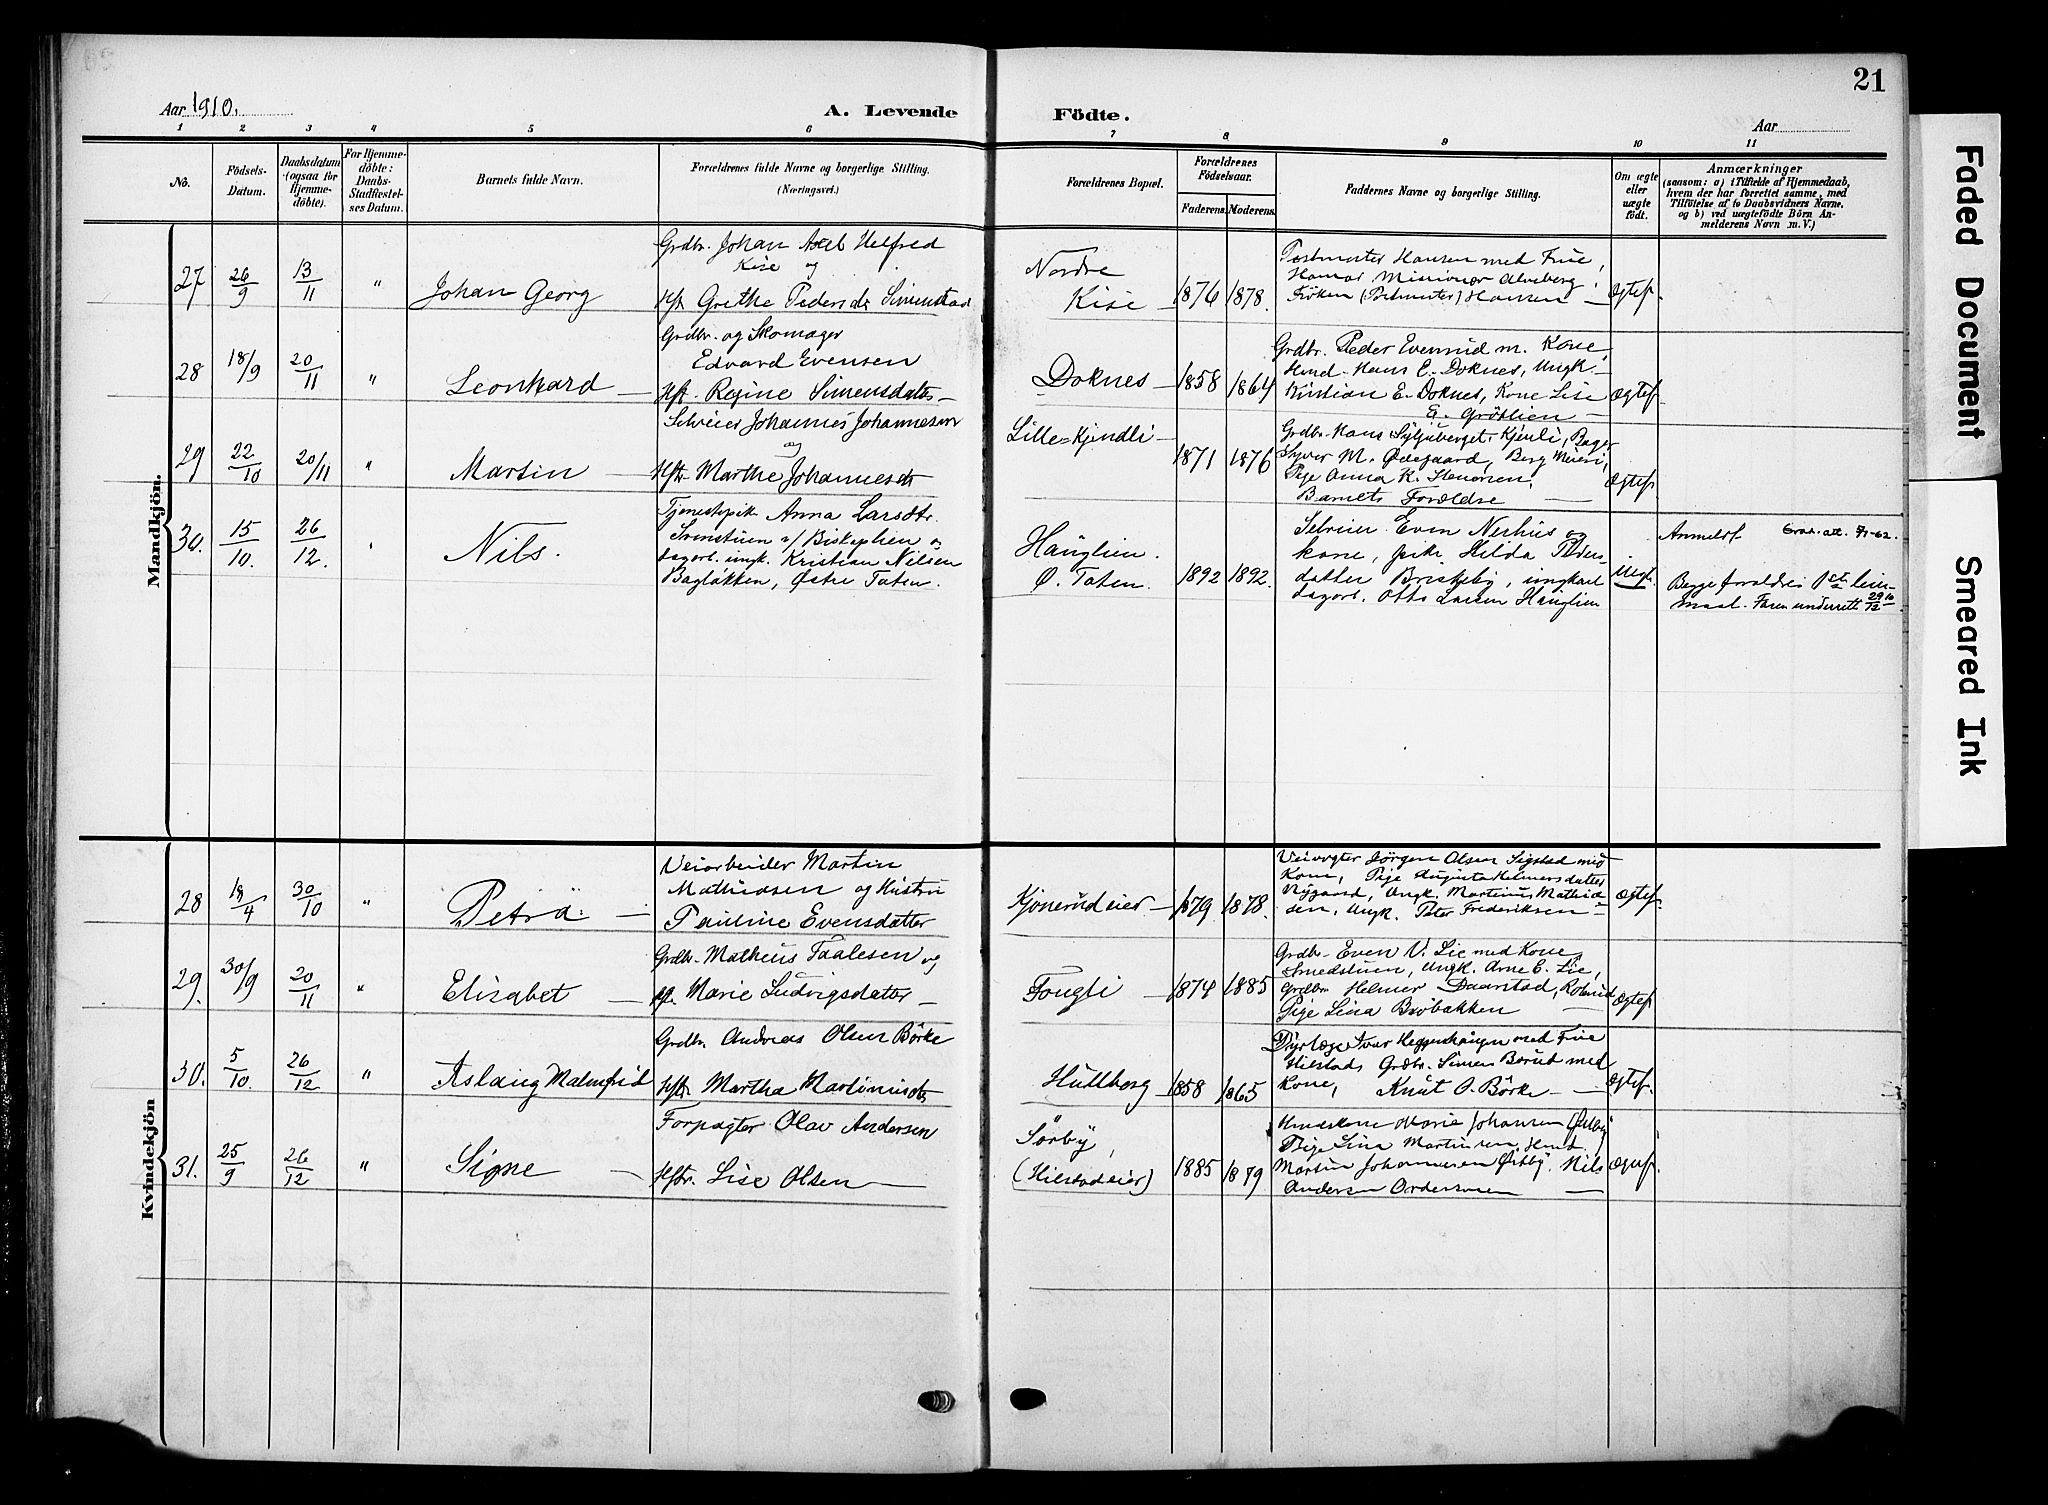 21
Aar 1910.
A. Levende
Födte.
Aar
1 2 3 4 5 6 7 8 9 10 11
No.
Födsels-
Datum.
Daabsdatum
(ogsaa for
Hjemme-
döbte).
For Hjemme-
döbte:
Daabs-
Stadfæstel-
ses Datum.
Barnets fulde Navn.
Forældrenes fulde Navne og borgerlige Stilling.
(Næringsvei.)
Forældrenes Bopæl.
Forældrenes
Födselsaar.
Faderens. Moderens.
Faddernes Navne og borgerlige Stilling.
Om ægte
eller
uægte
födt.
Anmærkninger
(saasom: a) i Tilfælde af Hjemmedaab,
hvem der har forrettet samme, med
Tilföielse af to Daabsvidners Navne,
og b) ved uægtefödte Börn An-
melderens Navn m. V.)
Mandkjön.
27 26/9 13/11 " Johan Georg
Grdbr. Johan Axel Helfred
Kise og
Hstr Grethe Pedersdr Simenstad
Nordre
Kise 1876 1878.
Postmester Hansen med Frue,
Hamar Missionær Alveberg,
Frøken (Postmester) Hansen
Ægtef.
28 18/9 20/11 " Leonhard
Grdbr. og Skomager
Edvard Evensen
Hst. Regine Simensdatter
Doknes 1858 1864
Grdbr. Peder Evensrud m. Kone,
Hmd. Hans E. Doknes, Ungk.
Kristian E. Doknes, Kone Lise
E. Grøtlien
Ægtef.
29 22/10 20/11 " Martin
Selveier Johannes Johannessen
og
Hstr Marthe Johannesdtr
Lille-Kjendli
1871 1876
Grdbr. Hans Syljuberget, Kjenli, Bager
Syver M. Ødegaard, Berg Meieri,
Pige Anna K. Stenersen,
Barnets Forældre
Ægtef.
30. 15/10. 26/12. " Nils.
Tjenestepik Anna Larsdtr.
Svenstuen u/ Biskoplien og
dagarb. ungk. Kristian Nilsen
Bagløkken, Østre Toten.
Hauglien.
Ø. Toten. 1892 1892.
Selveier Even Nerhus og
kone, pike Hilda Peders-
datter Briskeby, ungkarl
dagarb. Otto Larsen Hauglien
Uegt.
Anmeldt Grad. att. 7/1-62.
Begge forældres 1ste leier-
maal. Faren underrett 29/12 10
Kvindekjön
28 18/4 30/10 " Petra
Veiarbeider Martin
Mathiasen og Hustru
Pauline Evensdatter
Kjonerud eier 1879 1878.
Veivogter Jörgen Olsen Sigstad med
Kone, Pige Augusta Helmersdatter
Nygaard, Ungk. Martinus Mathia-
sen, Ungk. Peter Frederiksen
Ægtef.
29. 30/9 20/11 " Elisabet
Grdbr. Matheus Paalesen og
H. Marie Ludvigsdatter
Fougli 1874 1885
Grdbr. Even V. Lie med Kone,
Smedstuen, Ungk. Arne E. Lie,
Grdbr Helmer Daarstad,
Pige Lina Brobakken
Ægtef.
30. 5/10. 26/12 " Aslaug Malmfrid
Grdbr. Andreas Olsen Börke
Hstr Martha Martinusdtr
Hullborg 1858 1865
Dyrlæge Ivar Heggenhaugen med Frue
Hilstad, Grdbr. Simen Borud med
Kone, Knut O. Börke
Ægtef.
31. 25/9 26/12 " Signe
Forpagter Olav Andersen
Hstr. Lise Olsen
Sörby,
(Hilstadeier) 1885 1879
Hmdskone Marie Johansen
Pige Lina Martinsen, Hmd.
Martin Johannesen Nils
Andersen
Ægtef.
Faded Document
Smeared Ink